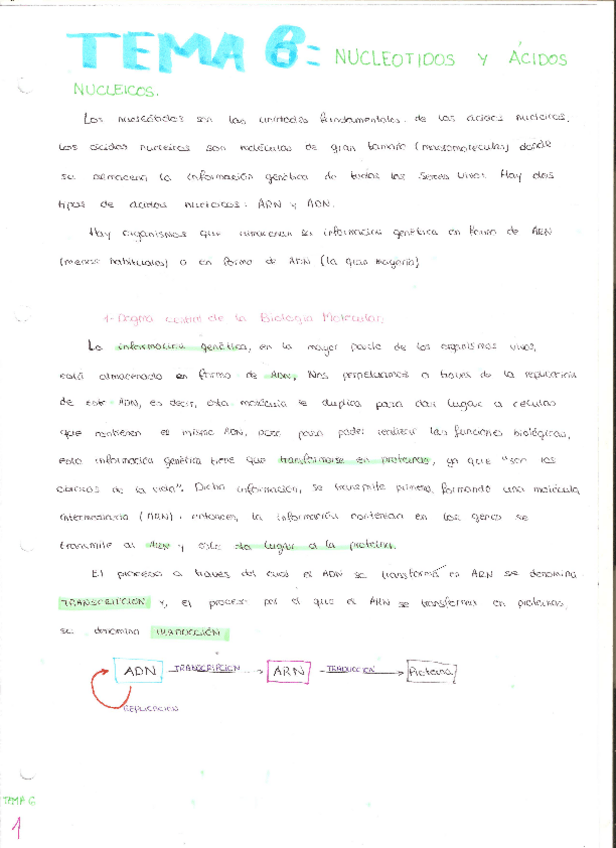 TEMA 6: NUCLEOTIDOS Y ÁCIDOS
NUCLEICOS.
Los nucleótidos son las unidades fundamentales de los ácidos nucleicos.
Los ácidos nucleicos son moléculas de gran tamaño (macromoléculas) donde
se almacena la información genética de todos los seres vivos. Hay dos
tipos de ácidos nucleicos: ARN y ADN.
Hay organismos que almacenan su información genética en forma de ARN
(menos habituales) o en forma de ADN (la gran mayoría)
1- Dogma central de la Biología Molecular.
La información genética, en la mayor parte de los organismos vivos,
está almacenada en forma de ADN. Nos perpetuamos a través de la replicación
de este ADN, es decir, esta molécula se duplica para dar lugar a células
que contienen el mismo ADN, pero para poder realizar las funciones biológicas,
esta información genética tiene que transformarse en proteínas, ya que "son las
de la vida". Dicha información, se transmite primero formando una molécula
intermediaria (ARN). entonces, la información contenida en los genes se
transmite al ARN y este da lugar a la proteína.
El proceso a través del cual el ADN se transforma en ARN se denomina
TRANSCRIPCIÓN y, el proceso por el que el ARN se transforma en proteínas,
se denomina TRADUCCIÓN
ADN TRANSCRIPCION ARN TRADUCCION Proteína
REPLICACION
TEMA 6
1